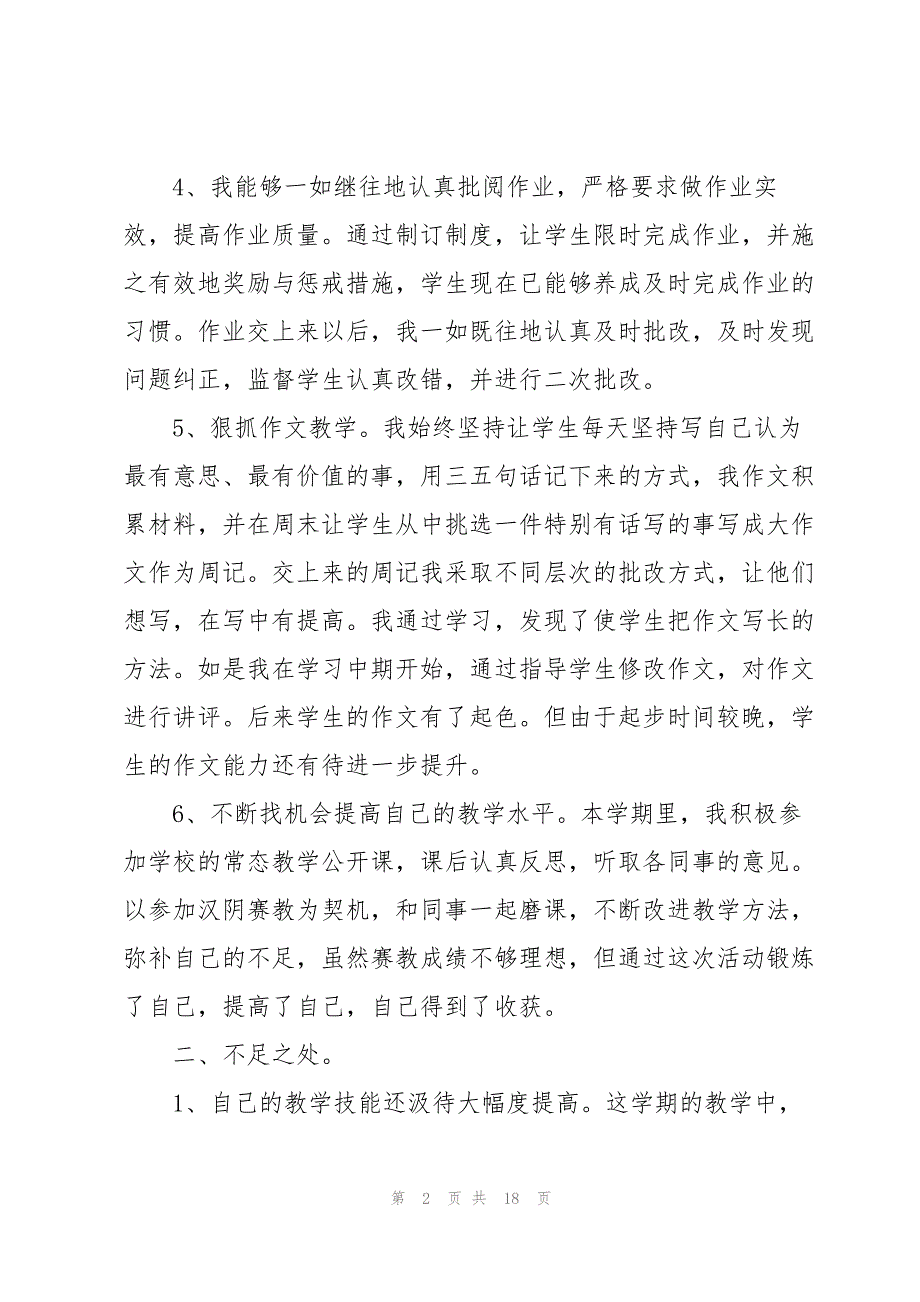 4、我能够一如继往地认真批阅作业，严格要求做作业实
效，提高作业质量。通过制订制度，让学生限时完成作业，并施
之有效地奖励与惩戒措施，学生现在已能够养成及时完成作业的
习惯。作业交上来以后，我一如既往地认真及时批改，及时发现
问题纠正，监督学生认真改错，并进行二次批改。
5、狠抓作文教学。我始终坚持让学生每天坚持写自己认为
最有意思、最有价值的事，用三五句话记下来的方式，我作文积
累材料，并在周末让学生从中挑选一件特别有话写的事写成大作
文作为周记。交上来的周记我采取不同层次的批改方式，让他们
想写，在写中有提高。我通过学习，发现了使学生把作文写长的
方法。如是我在学习中期开始，通过指导学生修改作文，对作文
进行讲评。后来学生的作文有了起色。但由于起步时间较晚，学
生的作文能力还有待进一步提升。
6、不断找机会提高自己的教学水平。本学期里，我积极参
加学校的常态教学公开课，课后认真反思，听取各同事的意见。
以参加汉阴赛教为契机，和同事一起磨课，不断改进教学方法，
弥补自己的不足，虽然赛教成绩不够理想，但通过这次活动锻炼
了自己，提高了自己，自己得到了收获。
二、不足之处。
1、自己的教学技能还汲待大幅度提高。这学期的教学中，
第 2 页 共 18 页